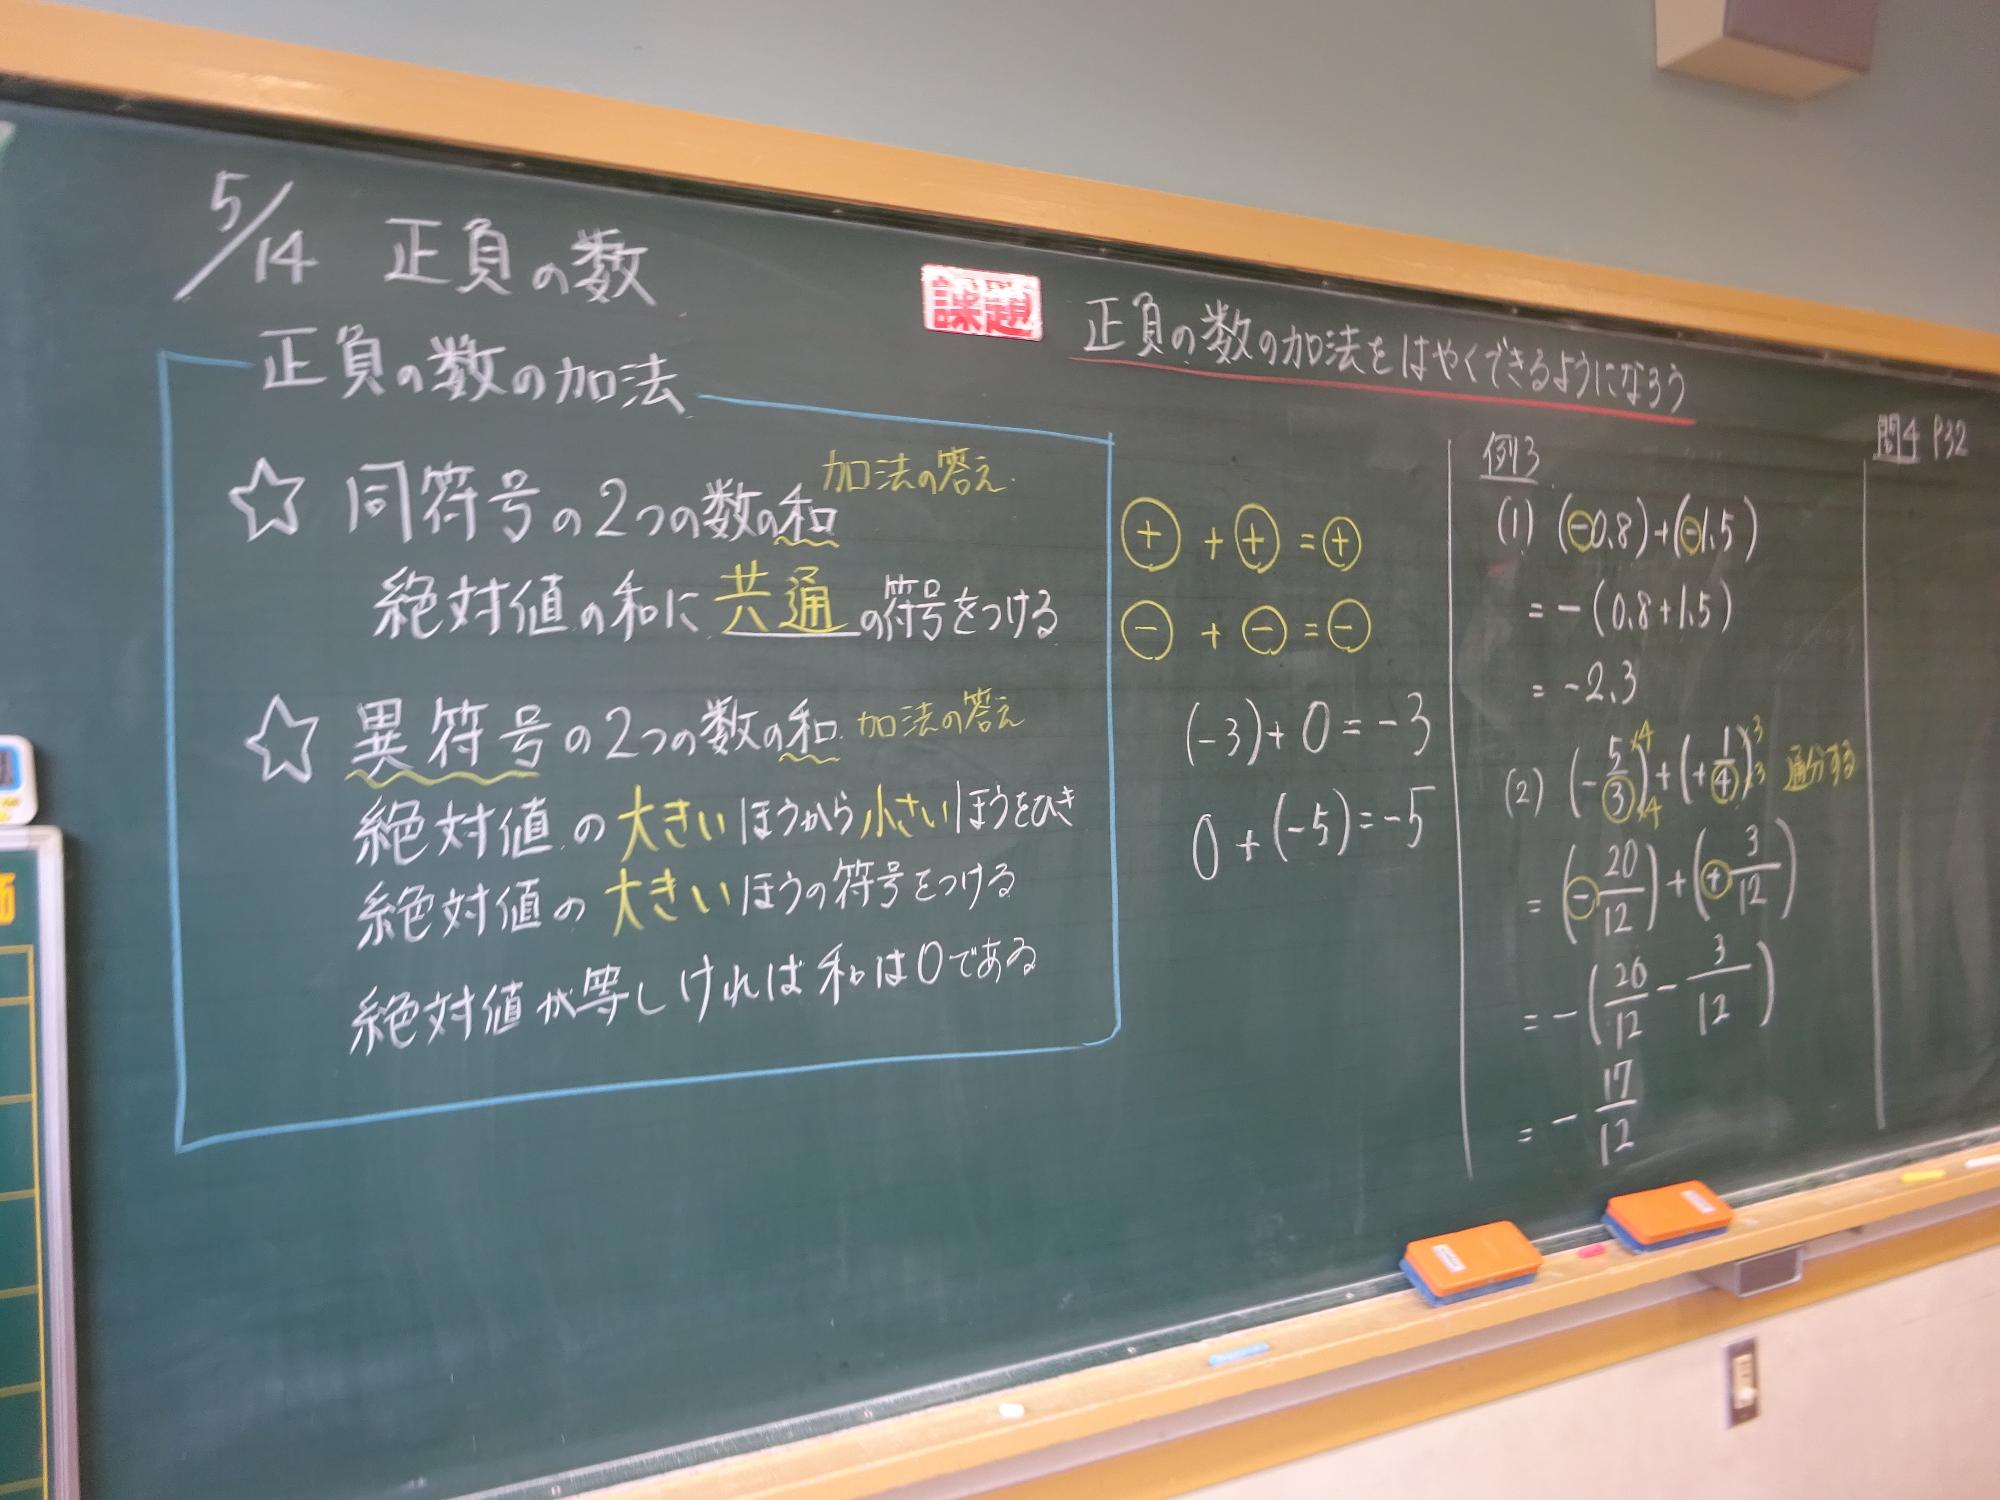 5/14 正負の数
正負の数の加法
☆ 同符号の2つの数の和 加法の答え
絶対値の和に共通の符号をつける
☆ 異符号の2つの数の和 加法の答え
絶対値の大きいほうから小さいほうをひき
絶対値の大きいほうの符号をつける
絶対値が等しければ和は0である
課題 正負の数の加法をはやくできるようになろう
⊕ + ⊕ = ⊕
⊖ + ⊖ = ⊖
(-3)+0=-3
0+(-5)=-5
例3
(1) (-0.8)+(-1.5)
=-(0.8+1.5)
=-2.3
(2) (-5/3)×4/×4+(+1/4)×3/×3 通分する
=(-20/12)+(+3/12)
=-(20/12-3/12)
=-17/12
問4 P32